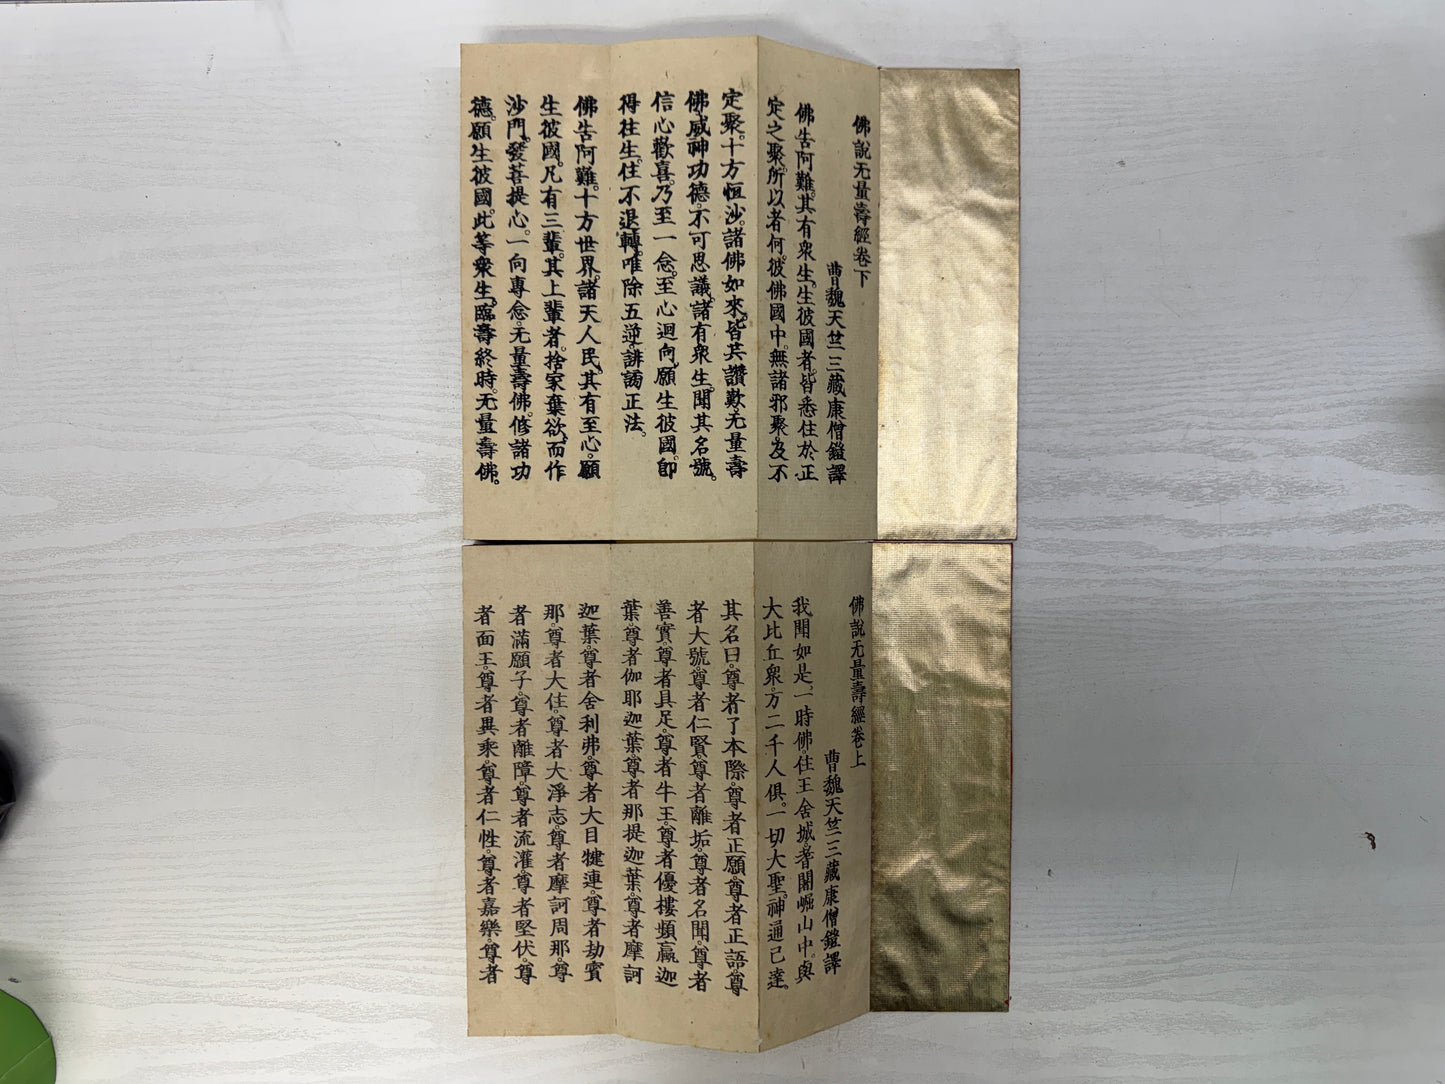 佛說无量壽經卷下
曹魏天竺三藏康僧鎧譯
佛告阿難。其有衆生。生彼國者。皆悉住於正
定之聚。所以者何。彼佛國中。無諸邪聚。及不
定聚。十方恒沙。諸佛如來。皆共讚歎。无量壽
佛。威神功德。不可思議。諸有衆生。聞其名號。
信心歡喜。乃至一念。至心迴向。願生彼國。卽
得往生。住不退轉。唯除五逆。誹謗正法。
佛告阿難。十方世界。諸天人民。其有至心。願
生彼國。凡有三輩。其上輩者。捨家棄欲。而作
沙門。發菩提心。一向專念。无量壽佛。修諸功
德。願生彼國。此等衆生。臨壽終時。无量壽佛。
佛說无量壽經卷上
曹魏天竺三藏康僧鎧譯
我聞如是。一時佛。住王舍城。耆闍崛山中。與
大比丘衆。万二千人俱。一切大聖。神通已達。
其名曰。尊者了本際。尊者正願。尊者正語。尊
者大號。尊者仁賢。尊者離垢。尊者名聞。尊者
善實。尊者具足。尊者牛王。尊者優樓頻蠃迦
葉。尊者伽耶迦葉。尊者那提迦葉。尊者摩訶
迦葉。尊者舍利弗。尊者大目犍連。尊者劫賓
那。尊者大住。尊者大淨志。尊者摩訶周那。尊
者滿願子。尊者離障。尊者流灌。尊者堅伏。尊
者面王。尊者異乘。尊者仁性。尊者嘉樂。尊者